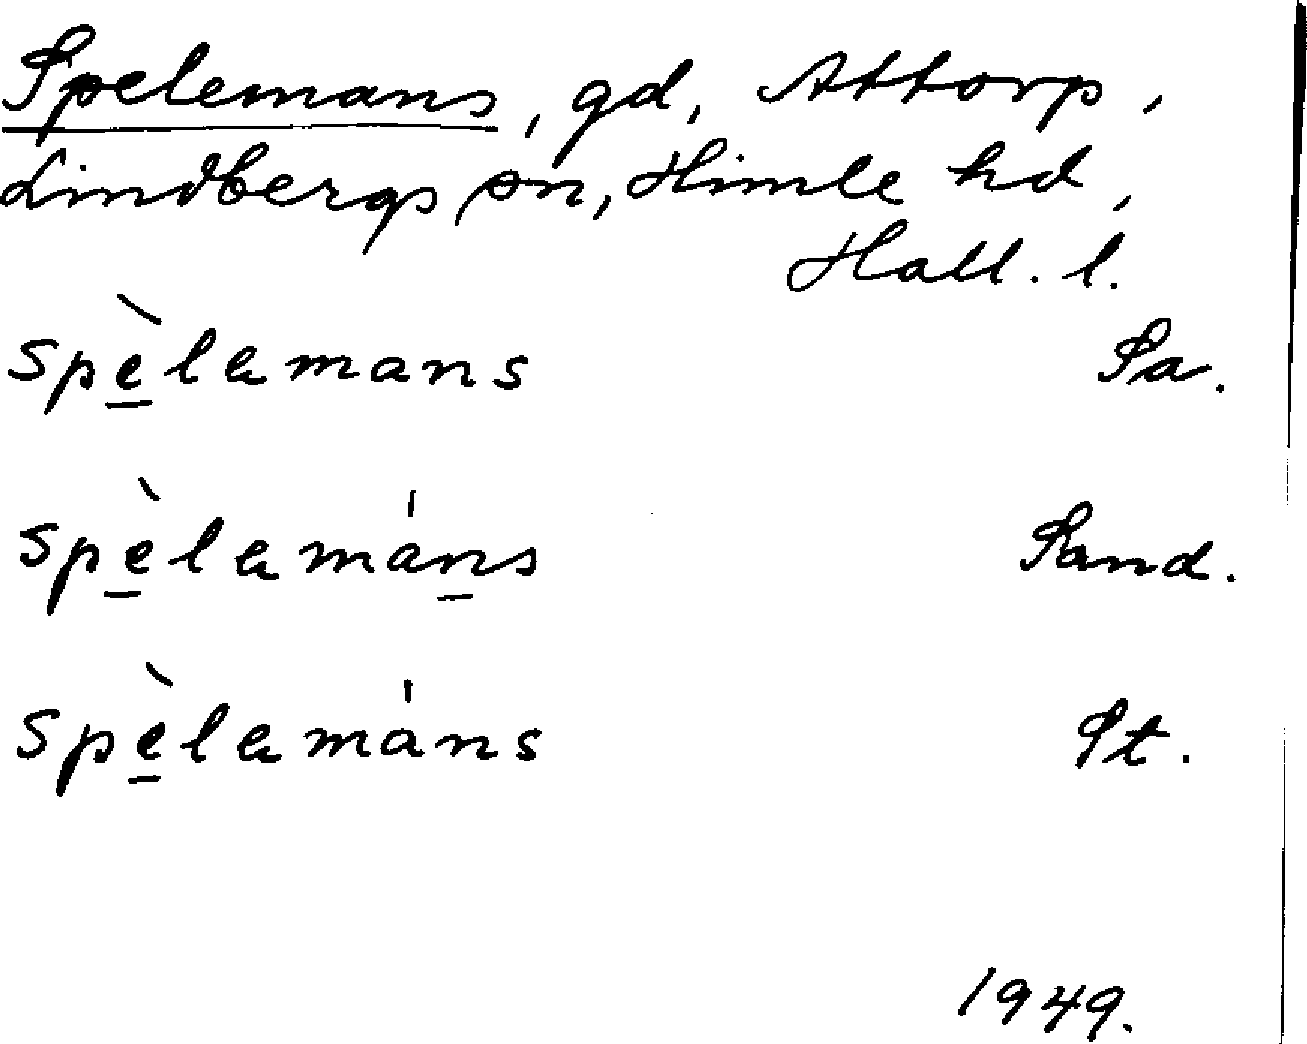 Spelemans, gd, Attorp,
Lindbergs sn, Himle hd,
Hall. l.
spè̲lɐmans Sa.
spè̲lɐmán̲s Sand.
spè̲lɐmáns St.
1949.